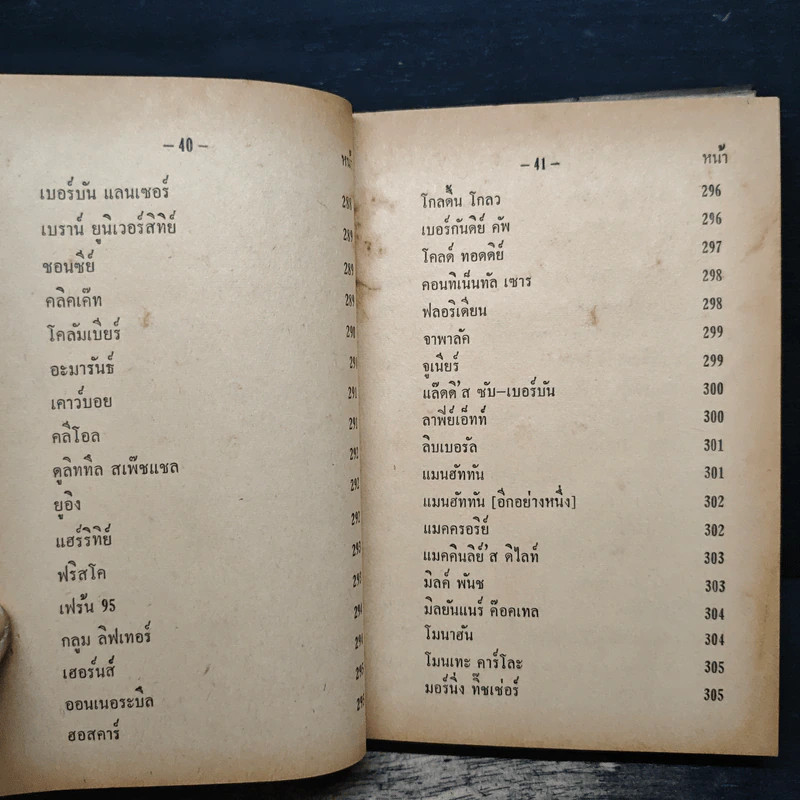 – 40 –
หน้า
เบอร์บัน แลนเซอร์ 288
เบราน์ ยูนิเวอร์สิทิย์ 289
ชอนซีย์ 289
คลิคเค๊ท 289
โคลัมเบียร์ 290
อะมารันธ์
เคาว์บอย 291
คลีโอล 291
ดูลิททิล สเพ๊ชแชล 292
ยูอิง 292
แฮร์ริทิย์ 292
ฟริสโค 293
เฟร้น 95 293
กลูม ลิฟเทอร์ 294
เฮอร์นส์
ออนเนอระบิล 295
ฮอสคาร์
– 41 –
หน้า
โกลดิ้น โกลว 296
เบอร์กันดิย์ คัพ 296
โคลด์ ทอดดิย์ 297
คอนทิเน็นทัล เซาร 298
ฟลอริเดียน 298
จาพาลัค 299
จูเนียร์ 299
แล๊ดดิ'ส ซับ–เบอร์บัน 300
ลาฟีย์เอ็ทท์ 300
ลิบเบอรัล 301
แมนฮัททัน 301
แมนฮัททัน [อีกอย่างหนึ่ง] 302
แมคครอรีย์ 302
แมคคินลีย์'ส ดิไลท์ 303
มิลค์ พันช 303
มิลยันแนร์ ค๊อคเทล 304
โมนาฮัน 304
โมนเทะ คาร์โละ 305
มอร์นิ่ง ทิ๊ชเช่อร์ 305